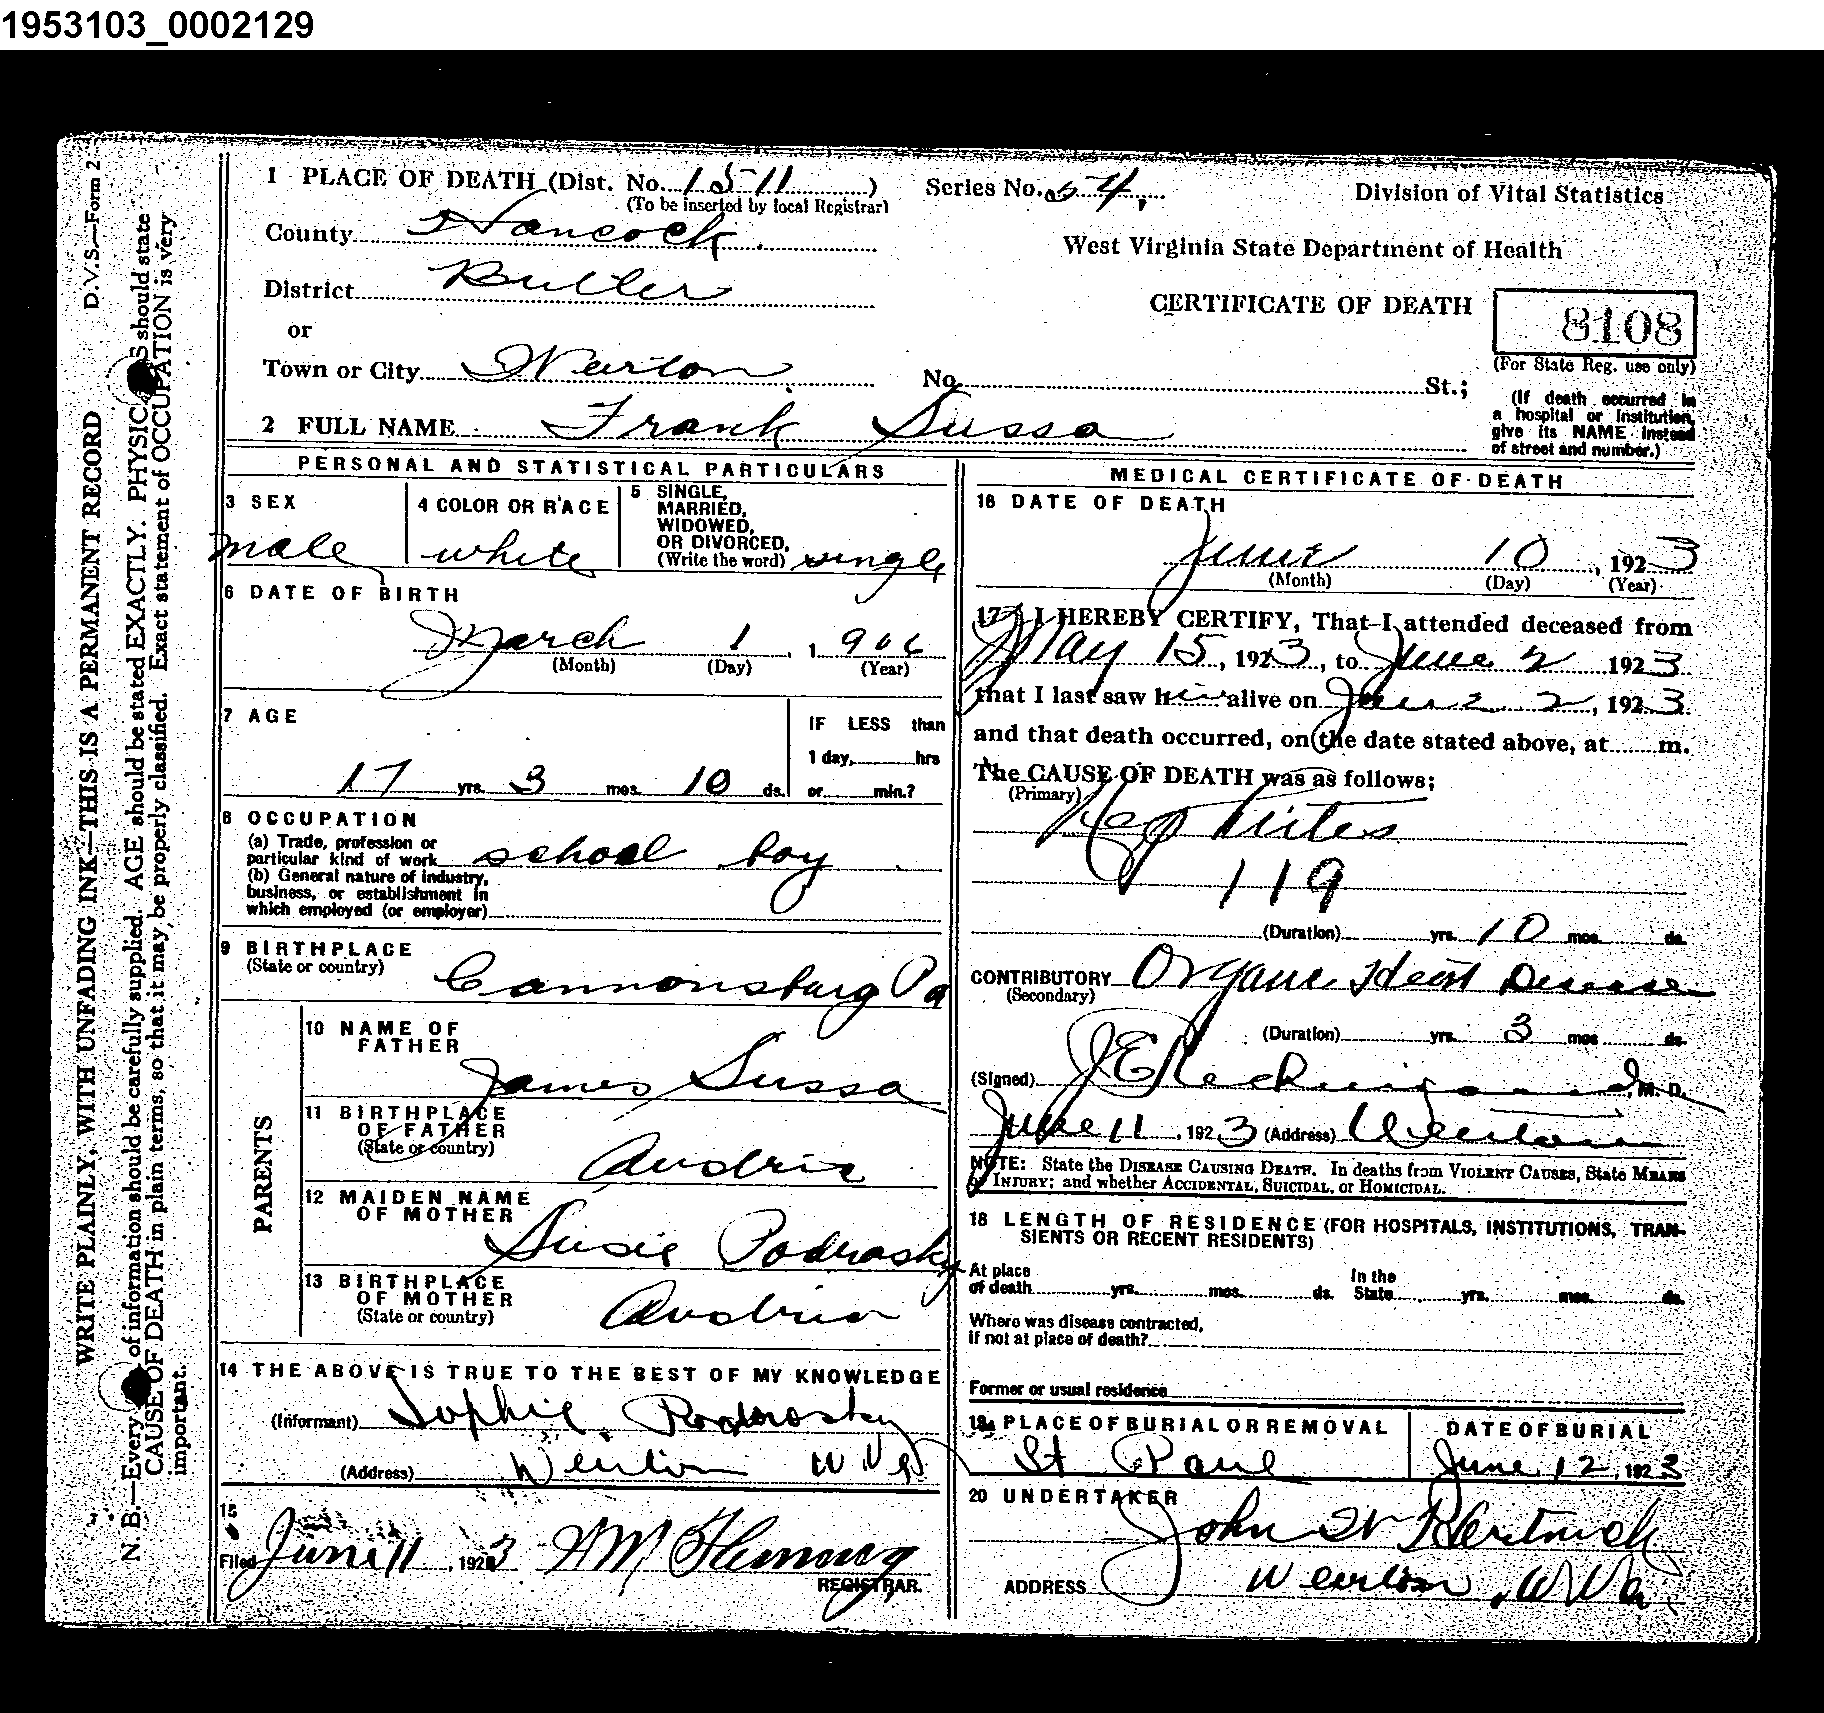 1953103_0002129
D.V.S.—Form 2
WRITE PLAINLY, WITH UNFADING INK—THIS IS A PERMANENT RECORD
N. B.—Every of information should be carefully supplied. AGE should be stated EXACTLY. PHYSIC S should state
CAUSE OF DEATH in plain terms, so that it may be properly classified. Exact statement of OCCUPATION is very
important.
1 PLACE OF DEATH (Dist. No. 1511)
(To be inserted by local Registrar)
Series No. 54
Division of Vital Statistics
County Hancock
West Virginia State Department of Health
District Butler
or
CERTIFICATE OF DEATH
8108
(For State Reg. use only)
Town or City Weirton
No. St.;
(If death occurred in
a hospital or institution,
give its NAME instead
of street and number.)
2 FULL NAME Frank Sussa
PERSONAL AND STATISTICAL PARTICULARS
3 SEX
male
4 COLOR OR RACE
white
5 SINGLE,
MARRIED,
WIDOWED,
OR DIVORCED.
(Write the word) single
6 DATE OF BIRTH
March 1, 1906
(Month) (Day) (Year)
7 AGE
17 yrs. 3 mos. 10 ds.
IF LESS than
1 day, hrs
or min.?
8 OCCUPATION
(a) Trade, profession or
particular kind of work school boy
(b) General nature of industry,
business, or establishment in
which employed (or employer)
9 BIRTHPLACE
(State or country)
Cannonsburg Pa
PARENTS
10 NAME OF
FATHER
James Sussa
11 BIRTHPLACE
OF FATHER
(State or country)
Austria
12 MAIDEN NAME
OF MOTHER
Susie Podrosky
13 BIRTHPLACE
OF MOTHER
(State or country)
Austria
14 THE ABOVE IS TRUE TO THE BEST OF MY KNOWLEDGE
(Informant) Sophie Podrosky
(Address) Weirton W Va
15
Filed June 11, 1923
Fleming
REGISTRAR.
MEDICAL CERTIFICATE OF DEATH
16 DATE OF DEATH
June 10, 1923
(Month) (Day) (Year)
17 I HEREBY CERTIFY, That I attended deceased from
May 15, 1923, to June 2 1923
that I last saw him alive on June 2, 1923.
and that death occurred, on the date stated above, at m.
The CAUSE OF DEATH was as follows:
(Primary)
Nephritis
119
(Duration) yrs. 10 mos. ds.
CONTRIBUTORY Organic Heart Disease
(Secondary)
(Duration) yrs. 3 mos ds.
(Signed) M. D.
June 11, 1923 (Address) Weirton
NOTE: State the DISEASE CAUSING DEATH. In deaths from VIOLENT CAUSES, State MEANS
of INJURY; and whether ACCIDENTAL, SUICIDAL, or HOMICIDAL.
18 LENGTH OF RESIDENCE (FOR HOSPITALS, INSTITUTIONS, TRAN-
SIENTS OR RECENT RESIDENTS)
At place
of death yrs. mos. ds.
In the
State yrs. mos. ds.
Where was disease contracted,
if not at place of death?
Former or usual residence
19 PLACE OF BURIAL OR REMOVAL
St Paul
DATE OF BURIAL
June 12, 1923
20 UNDERTAKER
John
ADDRESS Weirton, W Va